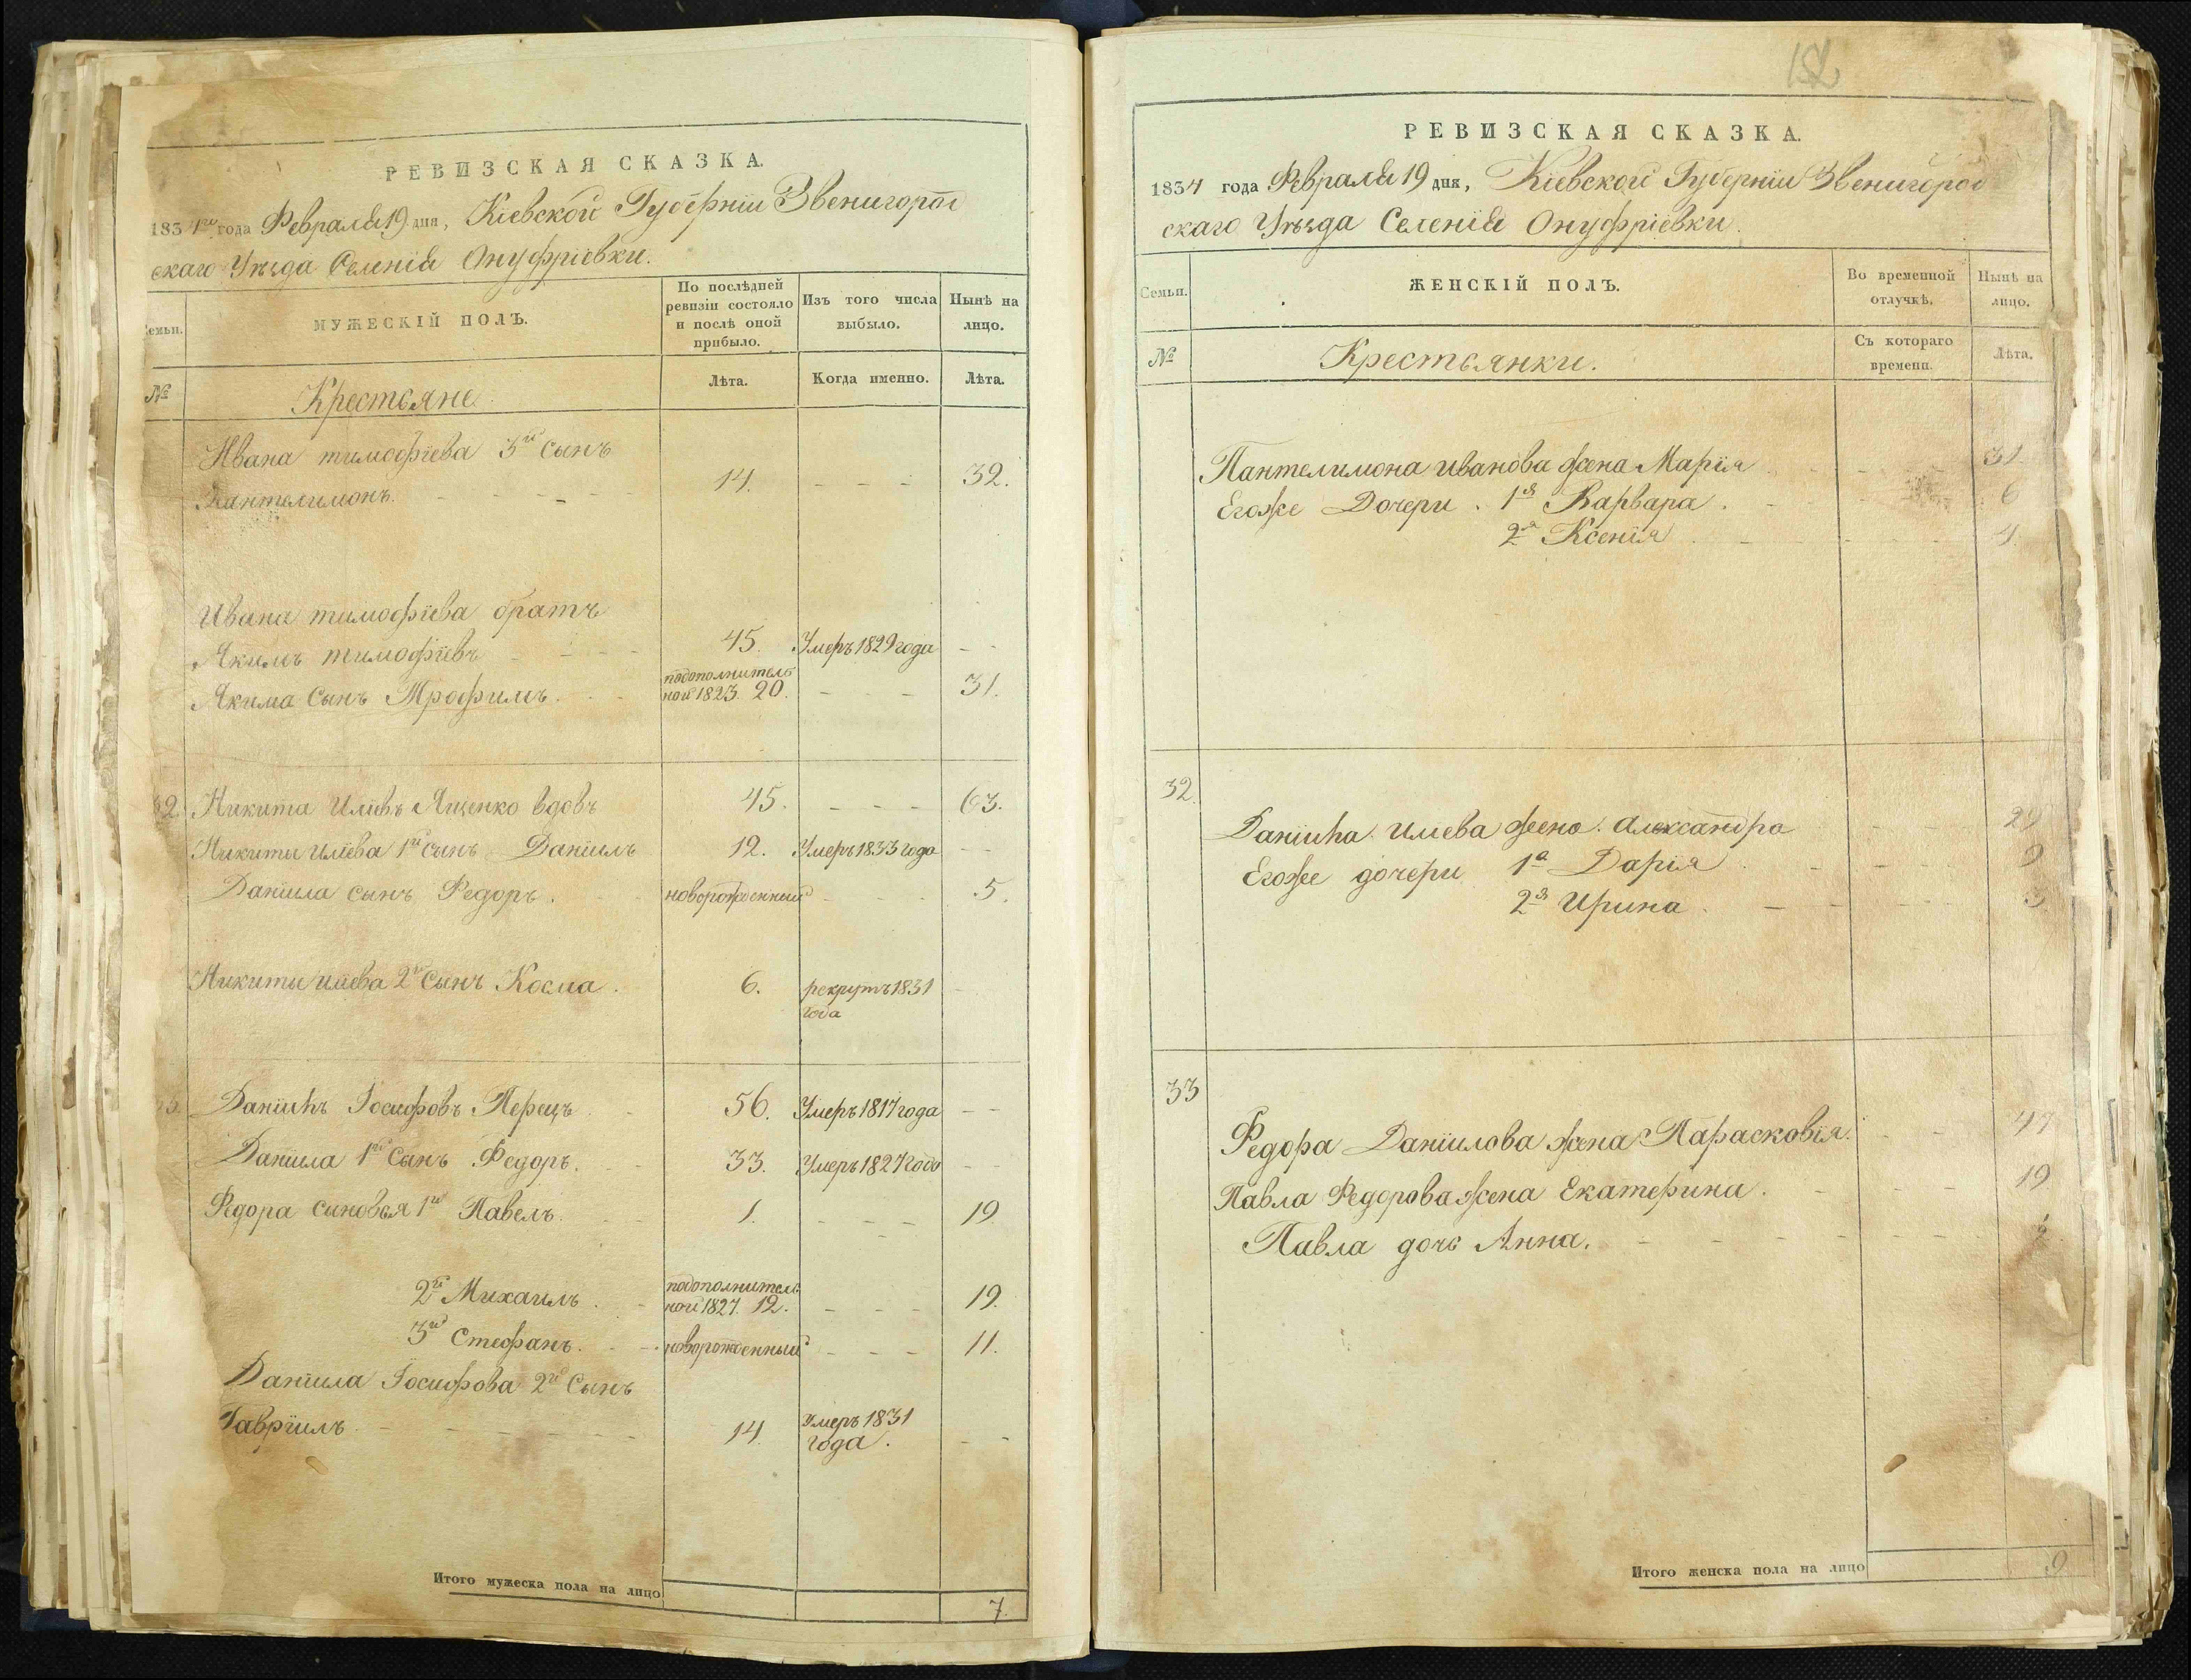 РЕВИЗСКАЯ СКАЗКА.
1834го года Февраля 19 дня, Кіевской Губерніи Звенигород
скаго Уѣзда Селенія Онуфріевки.
Семьи.
МУЖЕСКІЙ ПОЛЪ.
По послѣдней ревизіи состояло и послѣ оной прибыло.
Изъ того числа выбыло.
Нынѣ на лицо.
№
Крестьяне
Лѣта.
Когда именно.
Лѣта.
Ивана тимофіева 3й сынъ
Пантелимонъ. 14. 32.
Ивана тимофіева братъ
Якимъ тимофіевъ 45. Умеръ 1829 года
Якима Сынъ Трофимъ. подополнитель
ной 1823. 20. 31.
32. Никита Иліевъ Яценко вдовъ 45. 63.
Никиты иліева 1й сынъ Даніилъ 12. Умеръ 1833 года
Даніила сынъ Федоръ. новорожденный 5.
Никиты иліева 2й Сынъ Косма. 6. рекрутъ 1831
года
33. Даніилъ Іосифовъ Перецъ 56. Умеръ 1817 года
Даніила 1й Сынъ Федоръ. 33. Умеръ 1827 года
Федора сыновья 1й Павелъ. 1. 19
2й Михаилъ. подополнитель
ной 1827. 12. 19.
3й Стефанъ. новорожденный 11.
Даніила Іосифова 2й Сынъ
Гавріилъ 14. Умеръ 1831
года.
Итого мужеска пола на лицо 7.
152
РЕВИЗСКАЯ СКАЗКА.
1834 года Февраля 19 дня, Кіевской Губерніи Звенигород
скаго Уѣзда Селенія Онуфріевки.
Семьи.
ЖЕНСКІЙ ПОЛЪ.
Во временной отлучкѣ.
Нынѣ на лицо.
№
Крестьянки.
Съ котораго времени.
Лѣта.
Пантелимона иванова жена Марія 31.
Егоже Дочери. 1я Варвара. 6
2я Ксенія 4.
32.
Даніила Илиева жена. Александра 29
Егоже дочери 1я Дарія 9
2я Ирина 3
33
Федора Даніилова жена Парасковія. 47
Павла Федорова жена Екатерина. 19
Павла дочь Анна.
Итого женска пола на лицо 9